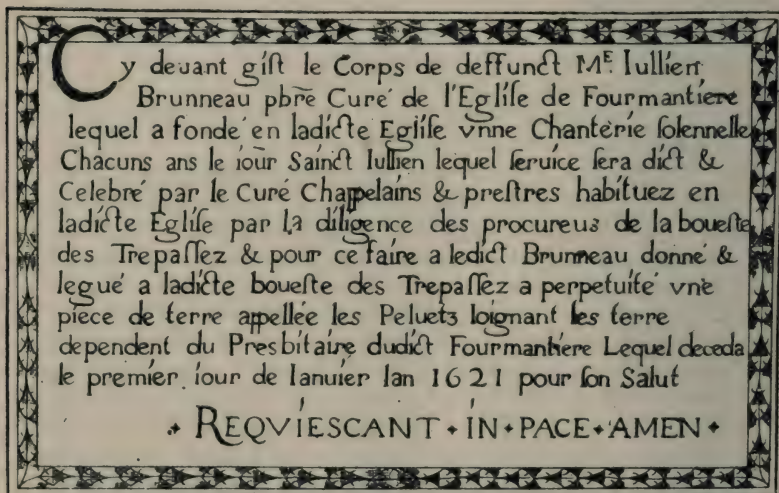 Cy deuant giſt le Corps de deffunct Mᴱ. Iullien
Brunneau pb̃re Curé de l'Egliſe de Fourmantiere
lequel a fondé en ladicte Egliſe vnne Chantèrie ſolennelle
Chacuns ans le ioûr Sainct Iullien lequel ſeruice ſera dict &
Celebré par le Curé Chappelains & preſtres habituez en
ladicte Egliſe par la diligence des procureus de la boueſte
des Trepaſſez & pour ce faire a ledict Brunneau donné &
legué a ladicte boueſte des Trepaſſez a perpetuité vne
piece de terre appellée les Peluetz Ioignant les terre
dependent du Presbitaire dudict Fourmantiere Lequel deceda
le premier iour de Ianuier lan 1621 pour ſon Salut
REQVIESCANT IN PACE AMEN